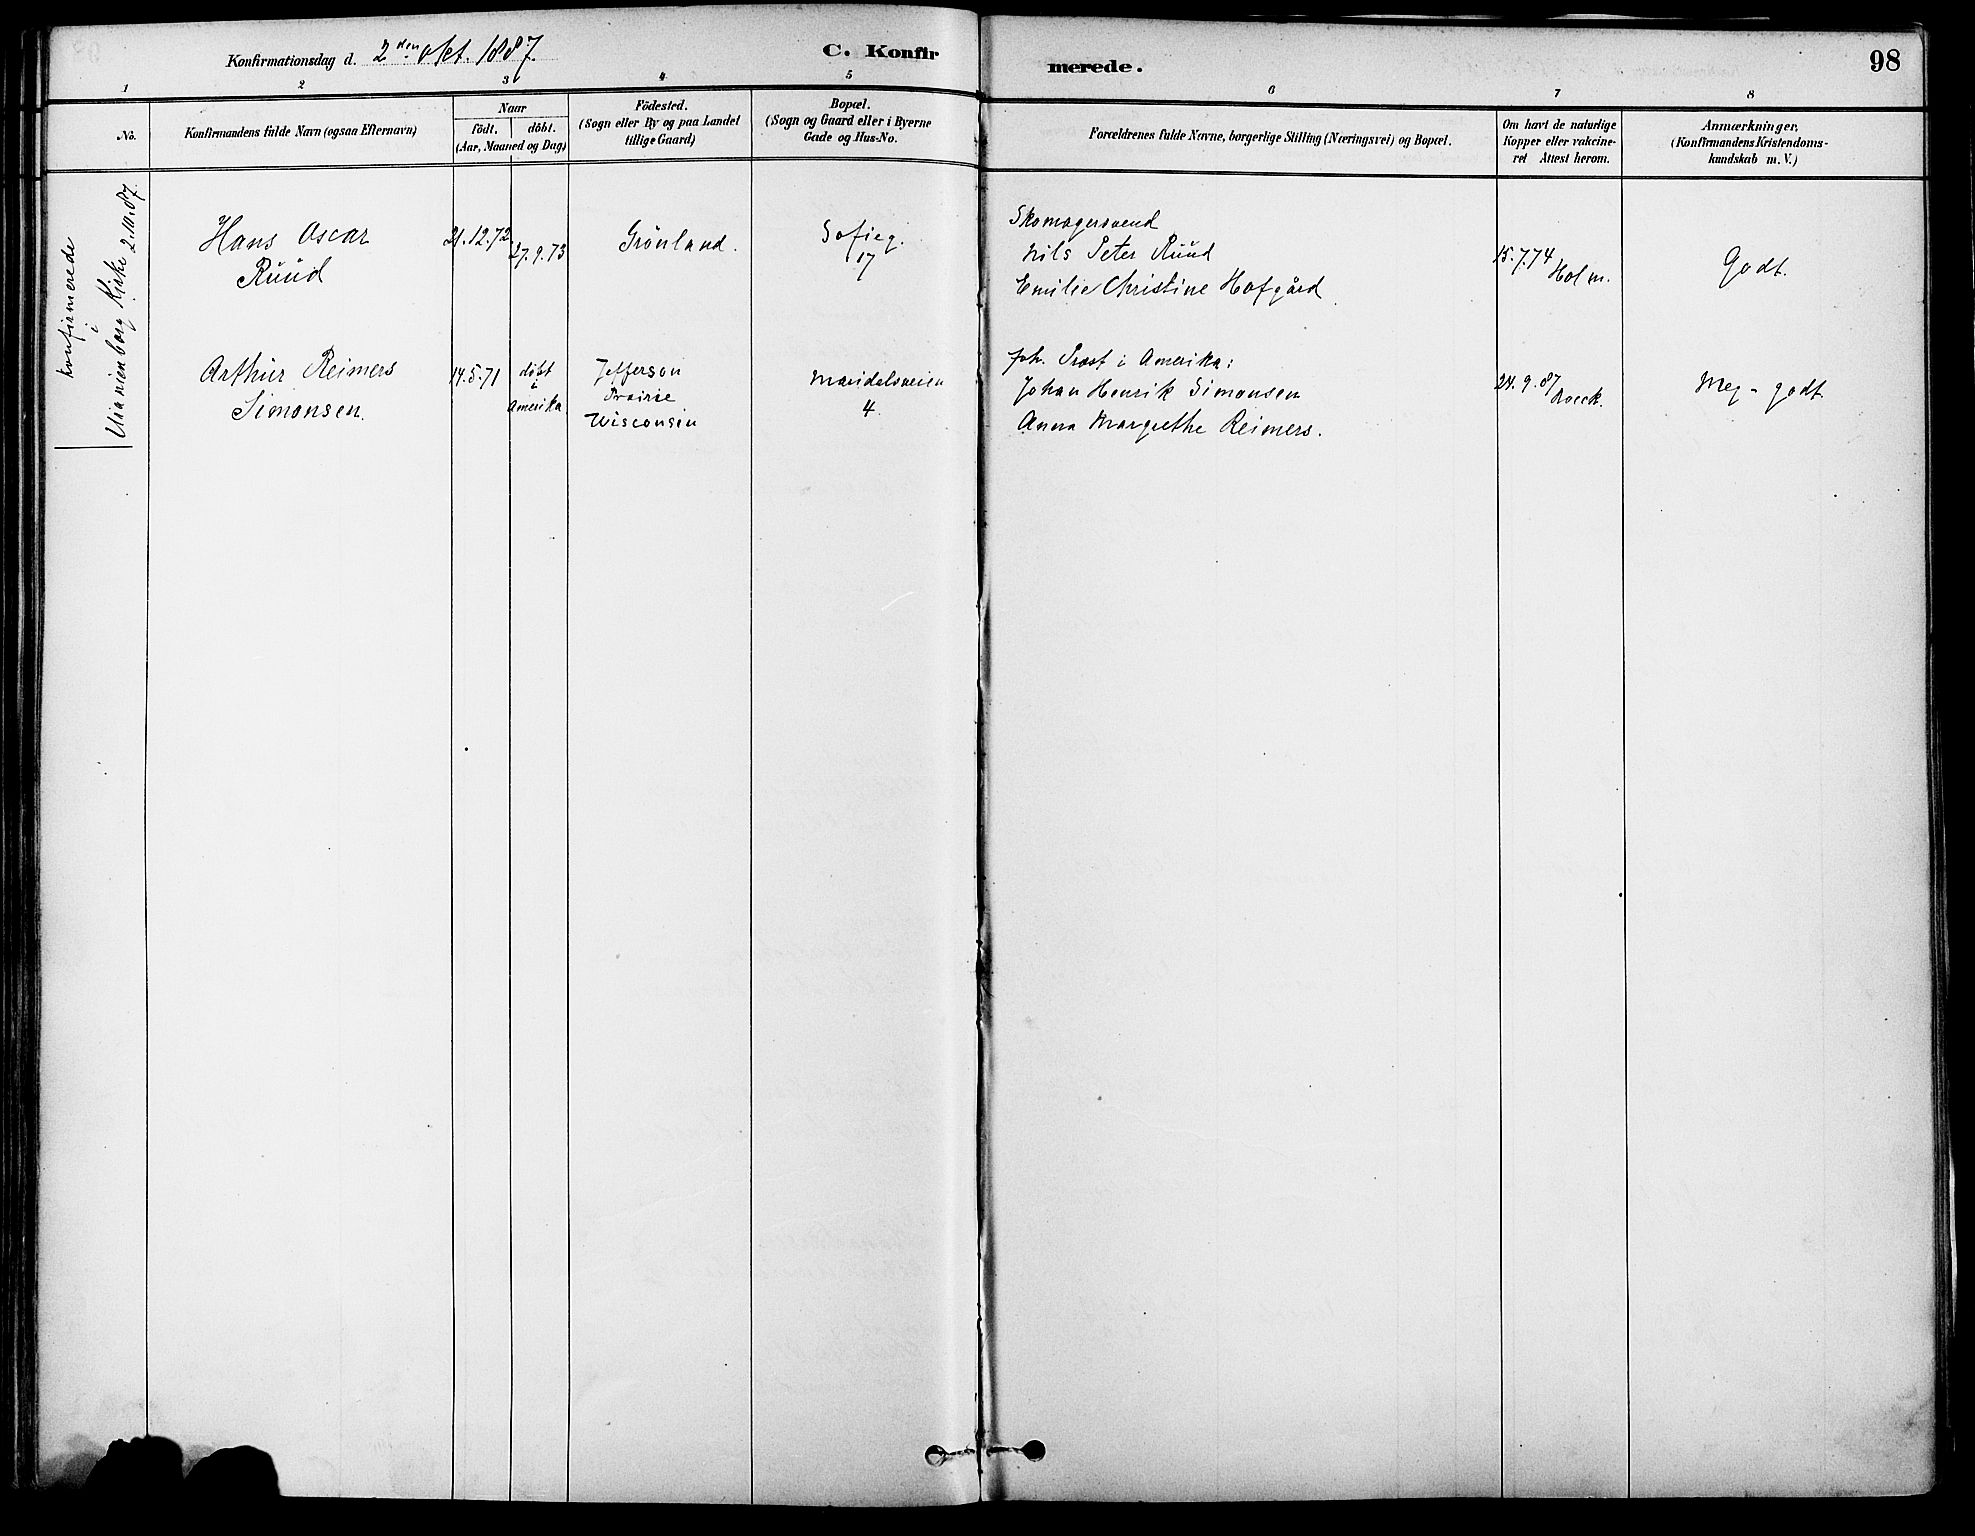 Konfirmationsdag d. 2den Okt. 1887.
C. Konfir
merede.
98
1 2 3 4 5 6 7 8
No.
Konfirmandens fulde Navn (ogsaa Efternavn)
Naar
födt. döbt.
(Aar, Maaned og Dag)
Födested.
(Sogn eller By og paa Landet
tillige Gaard)
Bopæl.
(Sogn og Gaard eller i Byerne
Gade og Hus-No.
Forældrenes fulde Navne, borgerlige Stilling (Næringsvei) og Bopæl.
Om havt de naturlige
Kopper eller vakcine-
ret Attest herom.
Anmærkninger,
(Konfirmandens Kristendoms-
kundskab m. V.)
konfirmerede
i
Uranienborg Kirke 2.10.87.
Hans Oscar
Ruud
21.12.72
27.9.73
Grönland.
Sofieg.
17
Skomagersvend
Nils Peter Ruud
Emilie Christine Hofgård
15.7.74
Holm.
Godt.
Arthur Reimers
Simonsen.
14.5.71
döbt
i
Amerika.
Jefferson
Prairie
Wisconsin
Maridalsveien
4.
fvh. Præst i Amerika:
Johan Henrik Simonsen
Anna Margrethe Reimers.
24.9.87
Meg. godt.